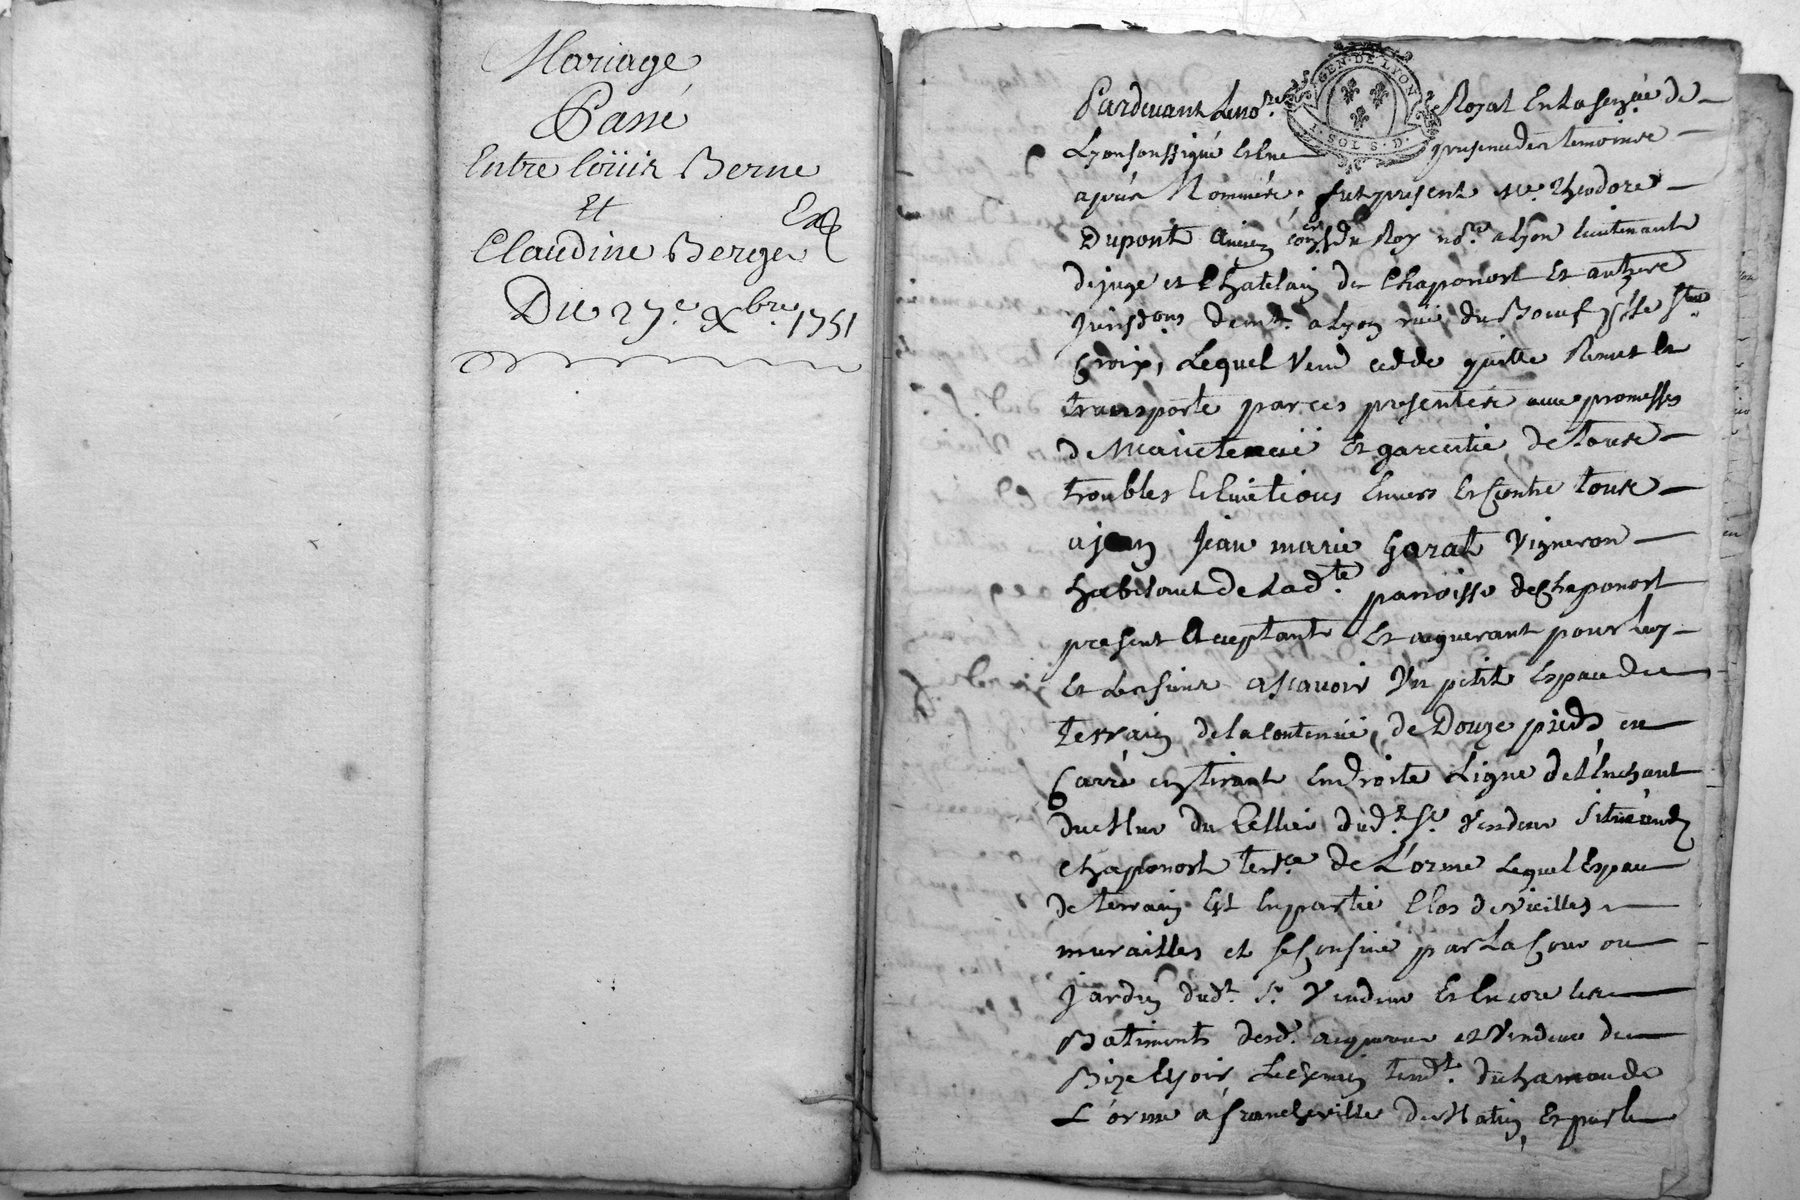 Mariage
Passé
Entre Loüis Berne
Et
Claudine Berger
Du 27e. Xbre 1751
GEN. DE LYON
1. SOL S. D.
Pardevant Le no.re Royal En La Senz.ée de
Lyon soussigné Et En presence des temoins
après Nommés. fut present Me. Theodore
Dupont Ancien con.er du Roy no.re a Lyon lieutenant
de juge et Chatelain de Chaponost Et autres
Jurisd.ons dem.t a Lyon rüe du Boeuf p.sse S.te
Croix, Lequel Vend cedde quitte Remet Et
transporte par ces presentes avec promesses
de Maintenüe Et garentie de tous
troubles Et Evictions Envers Et Contre tous
a Jean marie Garat Vigneron
habitant de Lad.te parroisse de Chaponost
present Acceptant Et aquerant pour luy
Et Les siens ascavoir Un petit Espace de
terrain de la Contenüe de Douze pieds en
Carré en tirant En droite Ligne de L'Enchant
du Mur du Cellier dud.t S.r Vendeur Situé aud.
Chaponost terr.re de L'orme Lequel Espace
de terrain Est En partie Clos de vieilles
murailles et se Confine par La Cour ou
Jardin dud.t S.r Vendeur Et Encore Les
Batiments desd. aquereur et Vendeur de
Bize Et soir, Le Chemin tend.t du hameau de
L'orme a francheville de Matin, Et par le